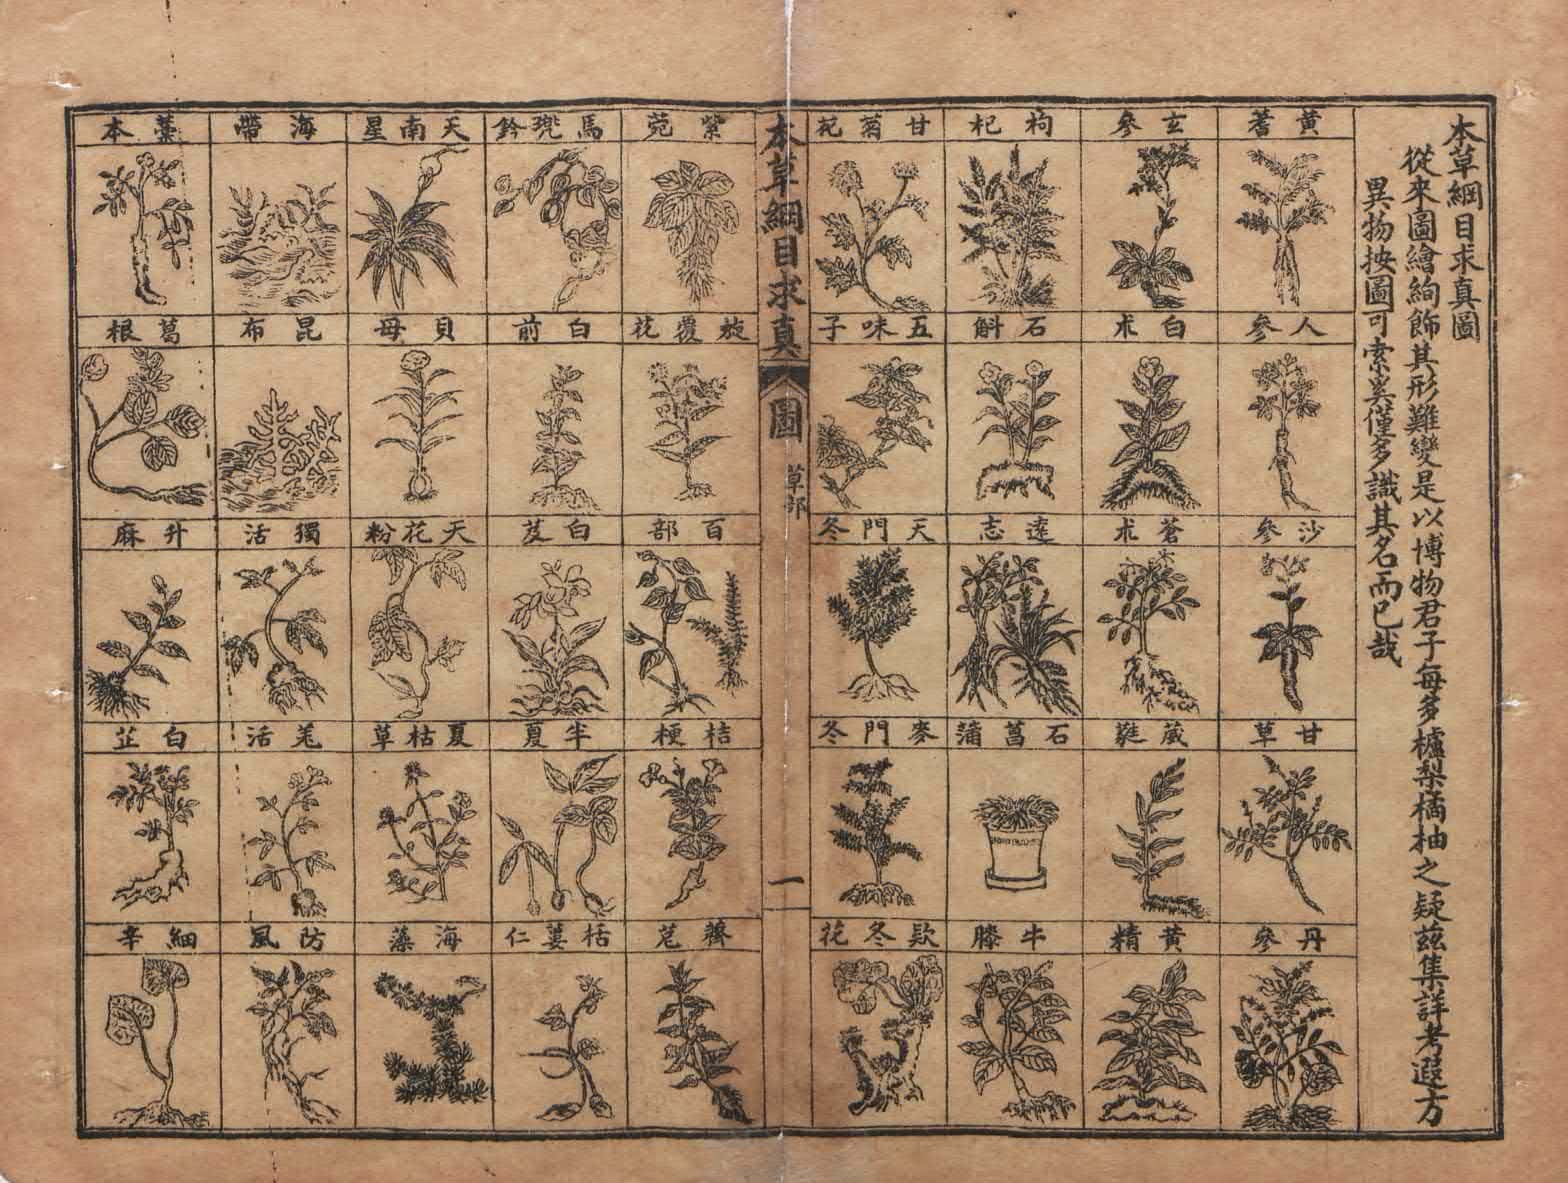 本草綱目求真圖
從來圖繪絢飾其形難變是以博物君子每多櫨梨橘柚之疑茲集詳考遐方
異物按圖可索奚僅多識其名而已哉
黃蓍
玄參
枸杞
甘菊花
人參
白朮
石斛
五味子
沙參
蒼朮
遠志
天門冬
甘草
葳蕤
石菖蒲
麥門冬
丹參
黃精
牛膝
款冬花
本草綱目求真
圖
草部
一
紫菀
馬兜鈴
天南星
海帶
藁本
旋覆花
白前
貝母
昆布
葛根
百部
白芨
天花粉
獨活
升麻
桔梗
半夏
夏枯草
羌活
白芷
薺苨
栝蔞仁
海藻
防風
細辛